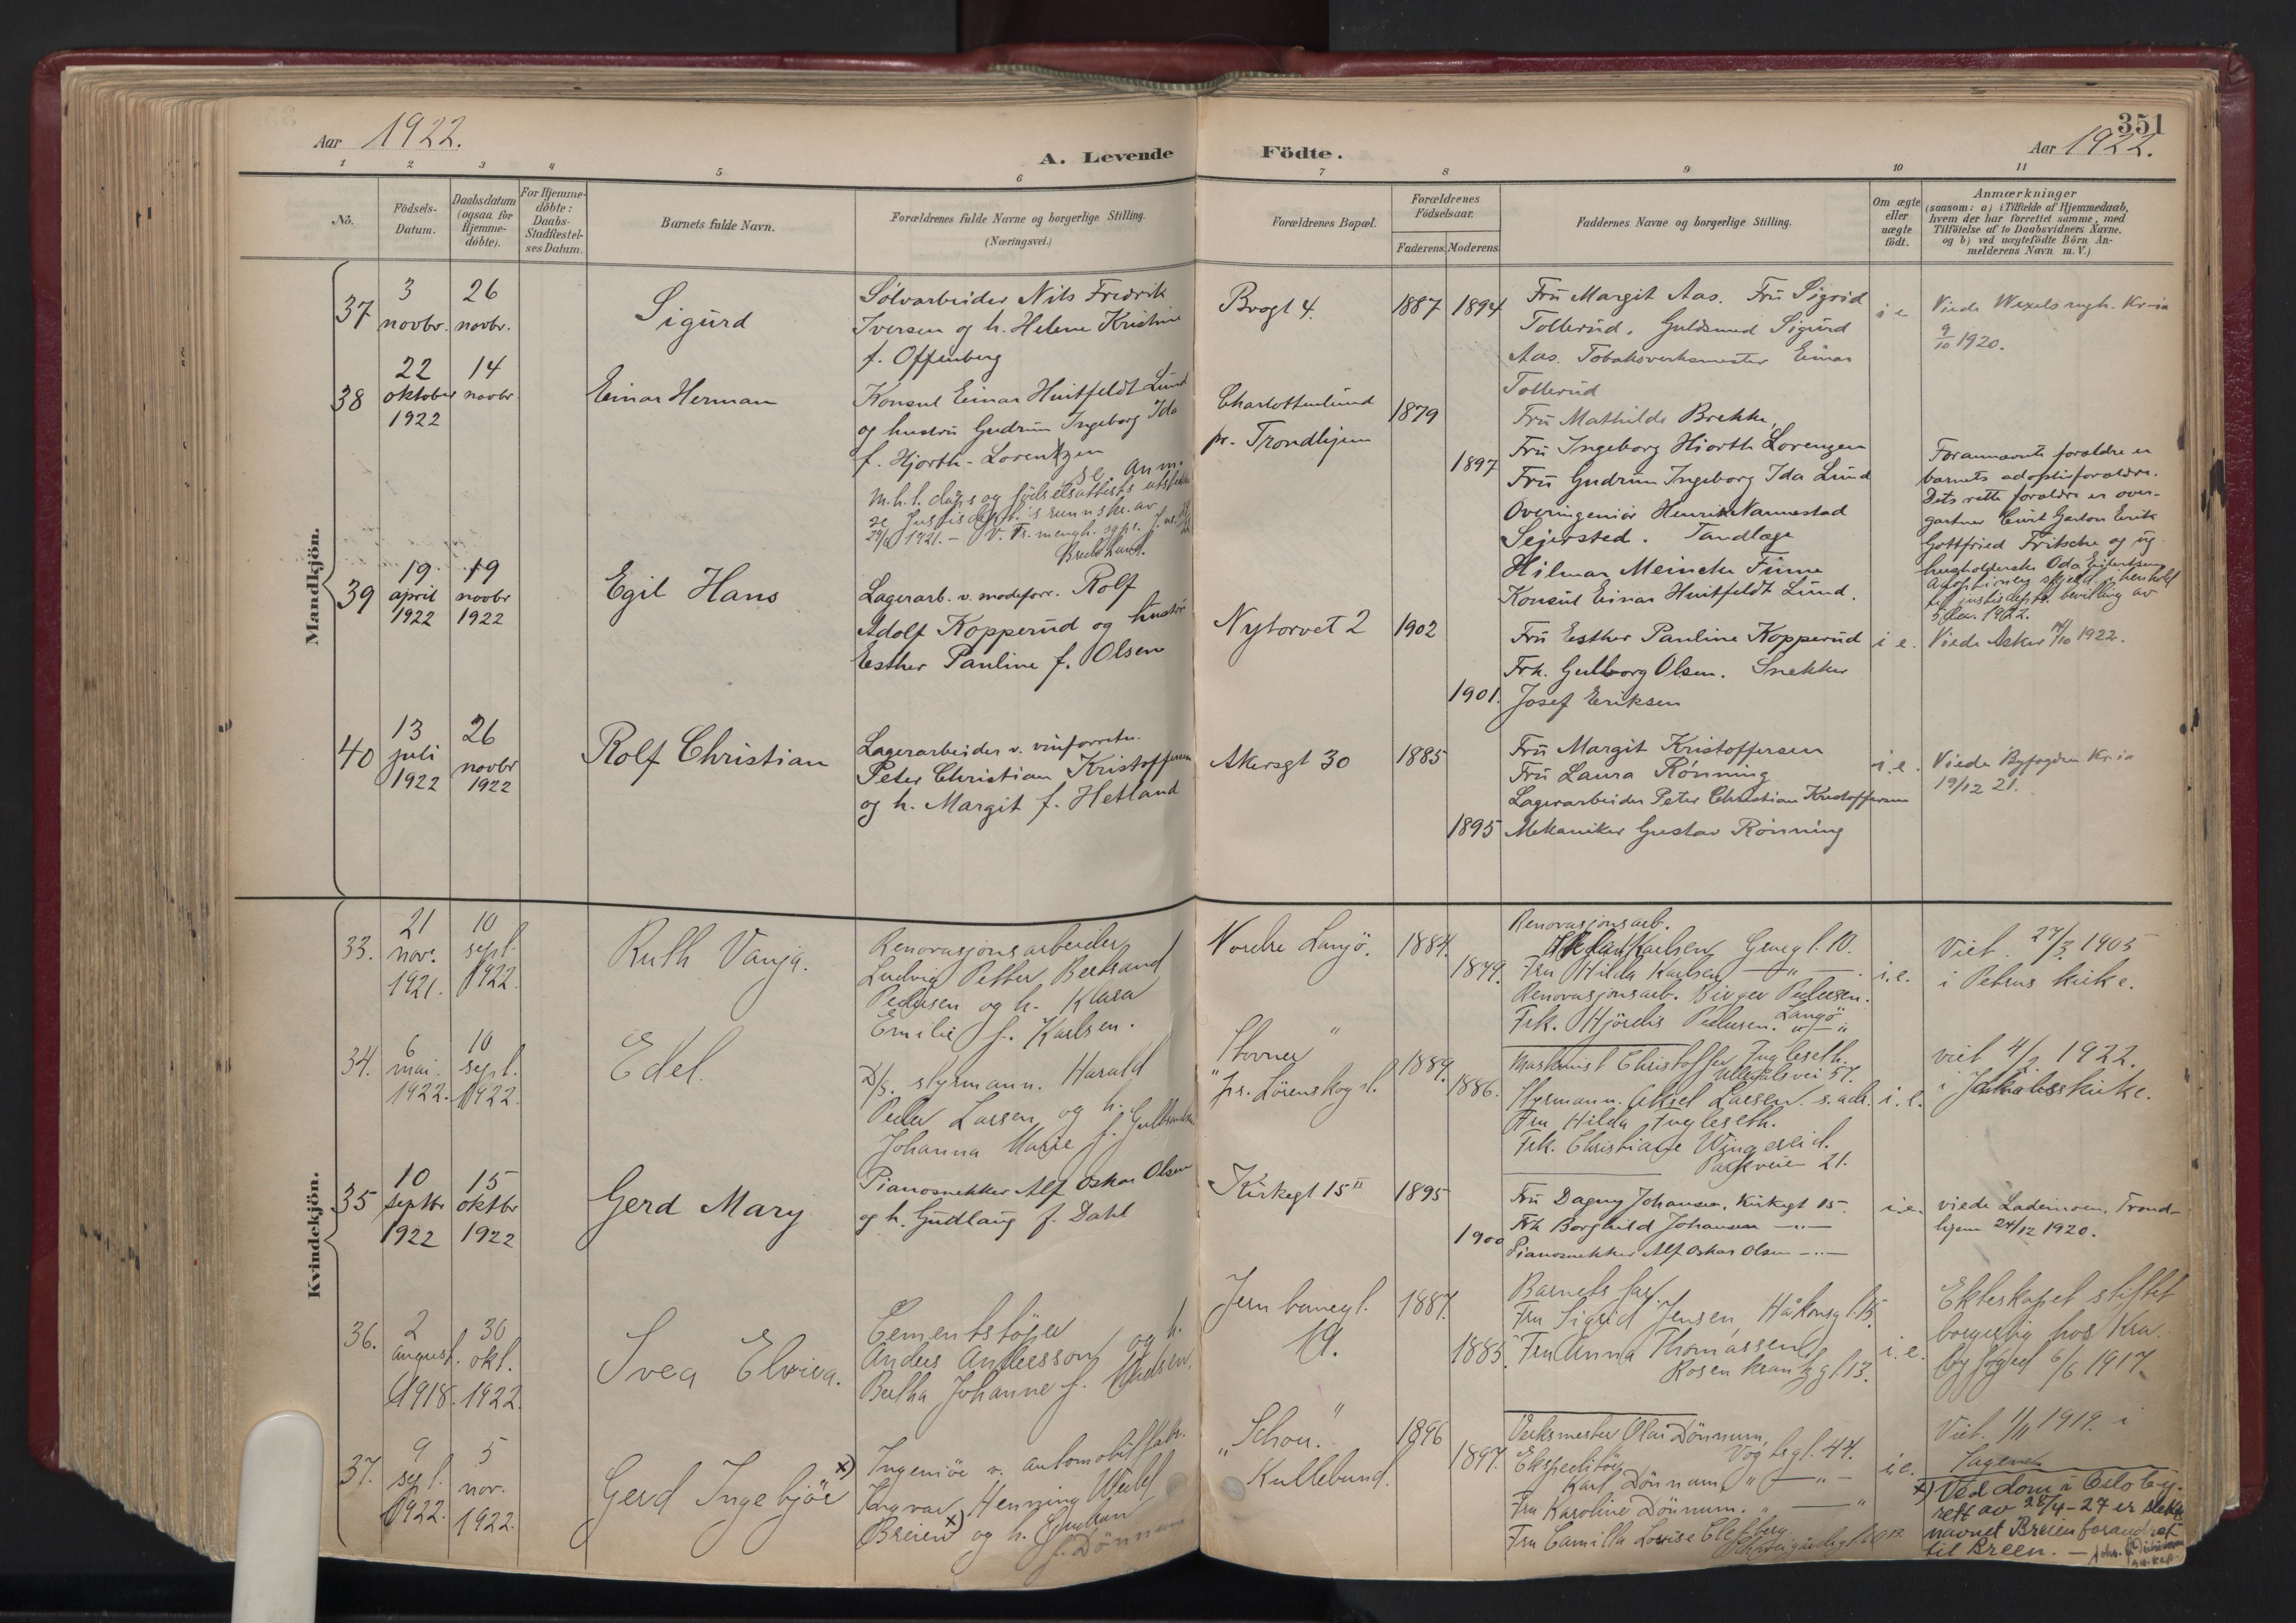 Aar 1922.
A. Levende
Födte.
351
Aar 1922.
1 2 3 4 5 6 7 8 9 10 11
No.
Födsels-
Datum.
Daabsdatum
(ogsaa for
Hjemme-
döbte).
For Hjemme-
döbte:
Daabs-
Stadfæstel-
ses Datum.
Barnets fulde Navn.
Forældrenes fulde Navne og borgerlige Stilling.
(Næringsvei.)
Forældrenes Bopæl.
Forældrenes
Födselsaar.
Faderens.
Moderens.
Faddernes Navne og borgerlige Stilling.
Om ægte
eller
uægte
födt.
Anmærkninger
(saasom: a) i Tilfælde af Hjemmedaab,
hvem der har forrettet samme, med
Tilföielse af to Daabsvidners Navne,
og b) ved uægtefödte Börn An-
melderens Navn m. V.)
Mandkjön.
37
3
novbr.
26
novbr.
Sigurd
Sölvarbeider Nils Fredrik
Iversen og h. Helene Kristine
f. Offenberg
Brogt 4.
1887
1894
Fru Margit Aas. Fru Sigrid
Tollerud. Guldsmed Sigurd
Aas. Tobaksverksmester Einar
Tollerud
i e
Viede Wexels mgh. Kr-ia
9/10 1920.
38
22
oktober
1922
14
novbr
Einar Herman
Konsul Einar Huitfeldt Lund
og hustru Gudrun Ingeborg Ida
f. Hjorth-Lorentzen
se. anm.
m.h.t. dåps og födselsattests
se Justisdept.'s
1921.
Charlottenlund
pr. Trondhjem
1879
1897
Fru Mathilde Brekke,
Fru Ingeborg Hiorth Lorenzen
Fru Gudrun Ingeborg Ida Lund
Overingeniör Henrik Nannestad
Sejersted. Tandlæge
Hilmar Meincke Finne
Konsul Einar Huitfeldt Lund.
Forannævnte forældre er
barnets adoptivforældre.
Dets rette forældre er over-
gartner Curt Gaston Erik
Gottfried Fritsche og ug.
husholderske Oda Eilertsen
bevilling av
5 1922.
39
19
april
1922
19
novbr
1922
Egil Hans
Lagerarb. v. modeforr. Rolf
Adolf Kopperud og hustru
Esther Pauline f. Olsen
Nytorvet 2
1902
1901.
Fru Esther Pauline Kopperud
Frk. Gulborg Olsen. Snekker
Josef Eriksen
i e.
Viede Asker 14/10 1922.
40
13
juli
1922
26
novbr
1922
Rolf Christian
Lagerarbeider v. vinforretn.
Peter Christian Kristoffersen
og h. Margit f. Hetland
Akersgt 30
1885
1895
Fru Margit Kristoffersen
Fru Laura Rönning
Lagerarbeider Peter Christian Kristoffersen
Mekaniker Gustav Rönning
i.e.
Viede Byfogden Kr.ia
19/12 21.
Kvindekjön.
33.
21
nov.
1921.
10
sept.
1922.
Ruth Vanja.
Renovasjonsarbeider
Ludvig Petter Bertrand
Pedersen og h. Klara
Emilie f. Karlsen.
Nordre Langö.
1884.
1879.
Renovasjonsarb.
Karlsen 10.
Fru Hilda Karlsen —"—.
Renovasjonsarb. Birger Pedersen.
Frk. Hjördis Pedersen. Langö
i.e.
Viet. 27/3 1905
i Petrus kirke.
34.
6
mai.
1922.
10
sept.
1922.
Edel.
D/s. styrmann. Harald
Peder Larsen og h.
Johanna Marie f.
"Stovner"
pr. Lörenskog st.
1889.
1886.
Maskinist Christoffer Fugleseth.
Ullevålsvei 57.
Styrmann. Aksel Larsen s. adr.
Fru Hilda Fugleseth.
Frk. Christiane
Parkveien 21.
i.e.
viet 4/2 1922.
i Jakobs kirke.
35
10
septbr
1922
15
oktbr
1922
Gerd Mary
Pianosnekker Alf Oskar Olsen
og h. Gudlaug f. Dahl
Kirkegt 15 II
1895
1900
Fru Dagny Johansen, Kirkegt 15.
Frk Borghild Johansen —"—
Pianosnekker Alf Oskar Olsen —"—
i.e.
viede Lademoen, Trond-
hjem 24/12 1920.
36.
2
august.
1918.
30
okt.
1922.
Svea Elvira.
Cementstöper
Anders Andersson og h.
Bertha Johanne f. Madsen.
Jernbanegt.
19.
1887.
1885.
Barnets far.
Fru Sigrid Jensen, Håkonsgt. 15.
Fru Anna Thomassen
Rosenkrantzgt. 13.
i.e.
Ekteskapet stiftet
borgerlig hos Kra.
byfoged 6/6 1917.
37.
9
sept.
1922.
5
nov.
1922.
Gerd Ingebjör
x) Ingeniör v. automobilfabr.
Ingvar Henning
Breien x) og h. Gudrun
f. Dönnum
"Schou."
Kullebund.
1896
1897.
Verksmester Olai Dönnum,
Vogtsgt. 44.
Ekspeditör
Karl Dönnum "—"—
Fru Karoline Dönnum. "—"
Fru Camilla Lovise
i.e.
Viet. 1/11 1919. i
Sagene
x) Ved dom i Oslo by-
rett av 28/4-27 er slekts
navnet Breien forandret
til Breen. —